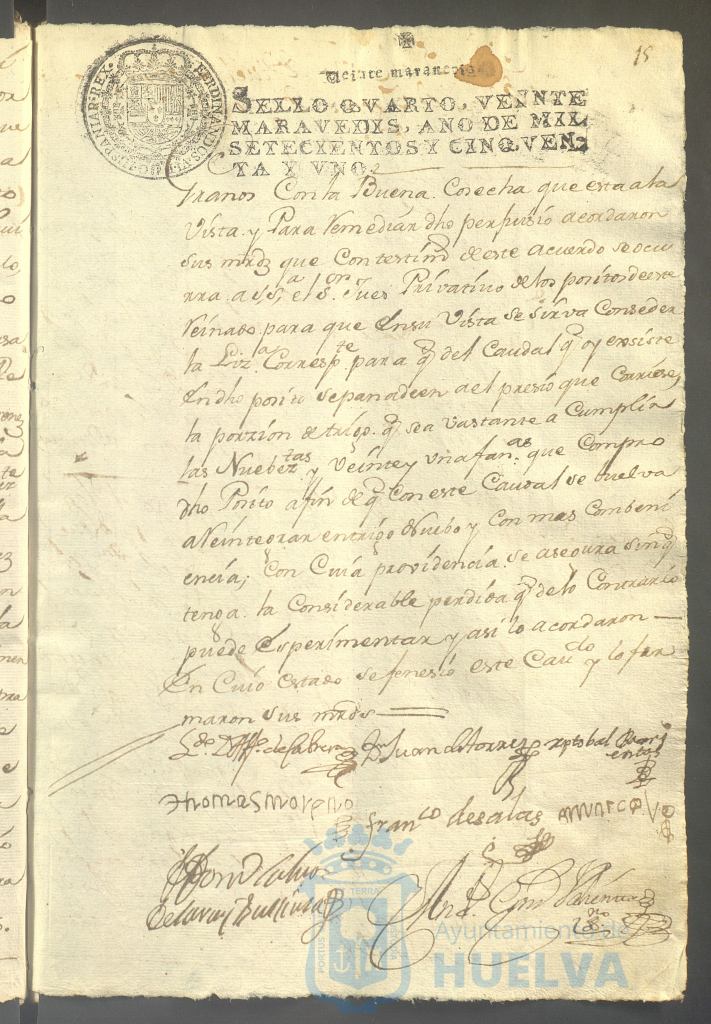 15
Veinte maravedis
FERDINANDUS VI D G HISPANIAR REX
SELLO QVARTO, VEINTE
MARAVEDIS, AÑO DE MIL
SETECIENTOS Y CINQVEN-
TA Y VNO.
Granos Con la Buena Cosecha que esta a la
Vista. y Para Remediar dho perjuisio acordaron
sus mrds que Con testimo de este Acuerdo se ocu
rra a Sa el Sor Jues Privativo de los positos de este
Reinado para que En su Vista se sirva Conseder
la Liza Correspte para q del Caudal q oy existe
En dho posito se panadeen ael presio que Corriese,
la porzion de trigo q sea vastante a Cumplir
las Nuebeztas y Veinte y una fanas que Compro
dho Posito a fin de q Con este Caudal se buelva
a Reintegrar en trigo Nuebo y Con mas Combeni
encia; Con Cuia providencia se asegura sin q
tenga la Considerable perdida q de lo Contrario
puede Esperimentar y asi lo acordaron
En Cuio Estado se fenesio este Caudo y lo fir
maron sus mrds
Ldo Dn de Cabrera Dn Juan de torres xptobal Barri
entos
thomas moreno
franco de salas
Ayuntamiento de
HUELVA
PORTUS
TERRA